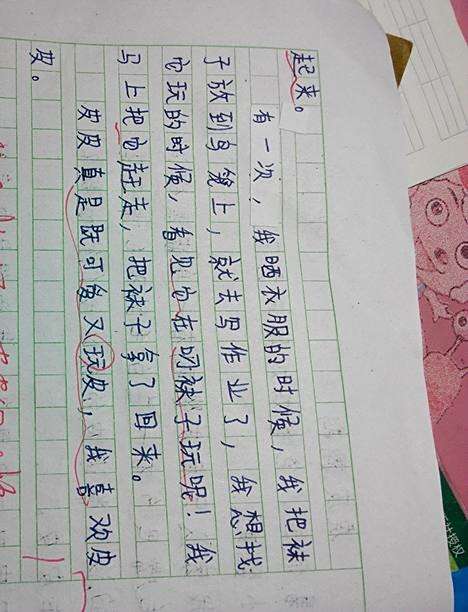 起来。
有一次，我晒衣服的时候，我把袜
子放到鸟笼上，就去写作业了，我想找
它玩的时候，看见它在叼袜子玩呢！我
马上把它赶走，把袜子拿了回来。
皮皮真是既可爱又玩皮，我喜欢皮
皮。